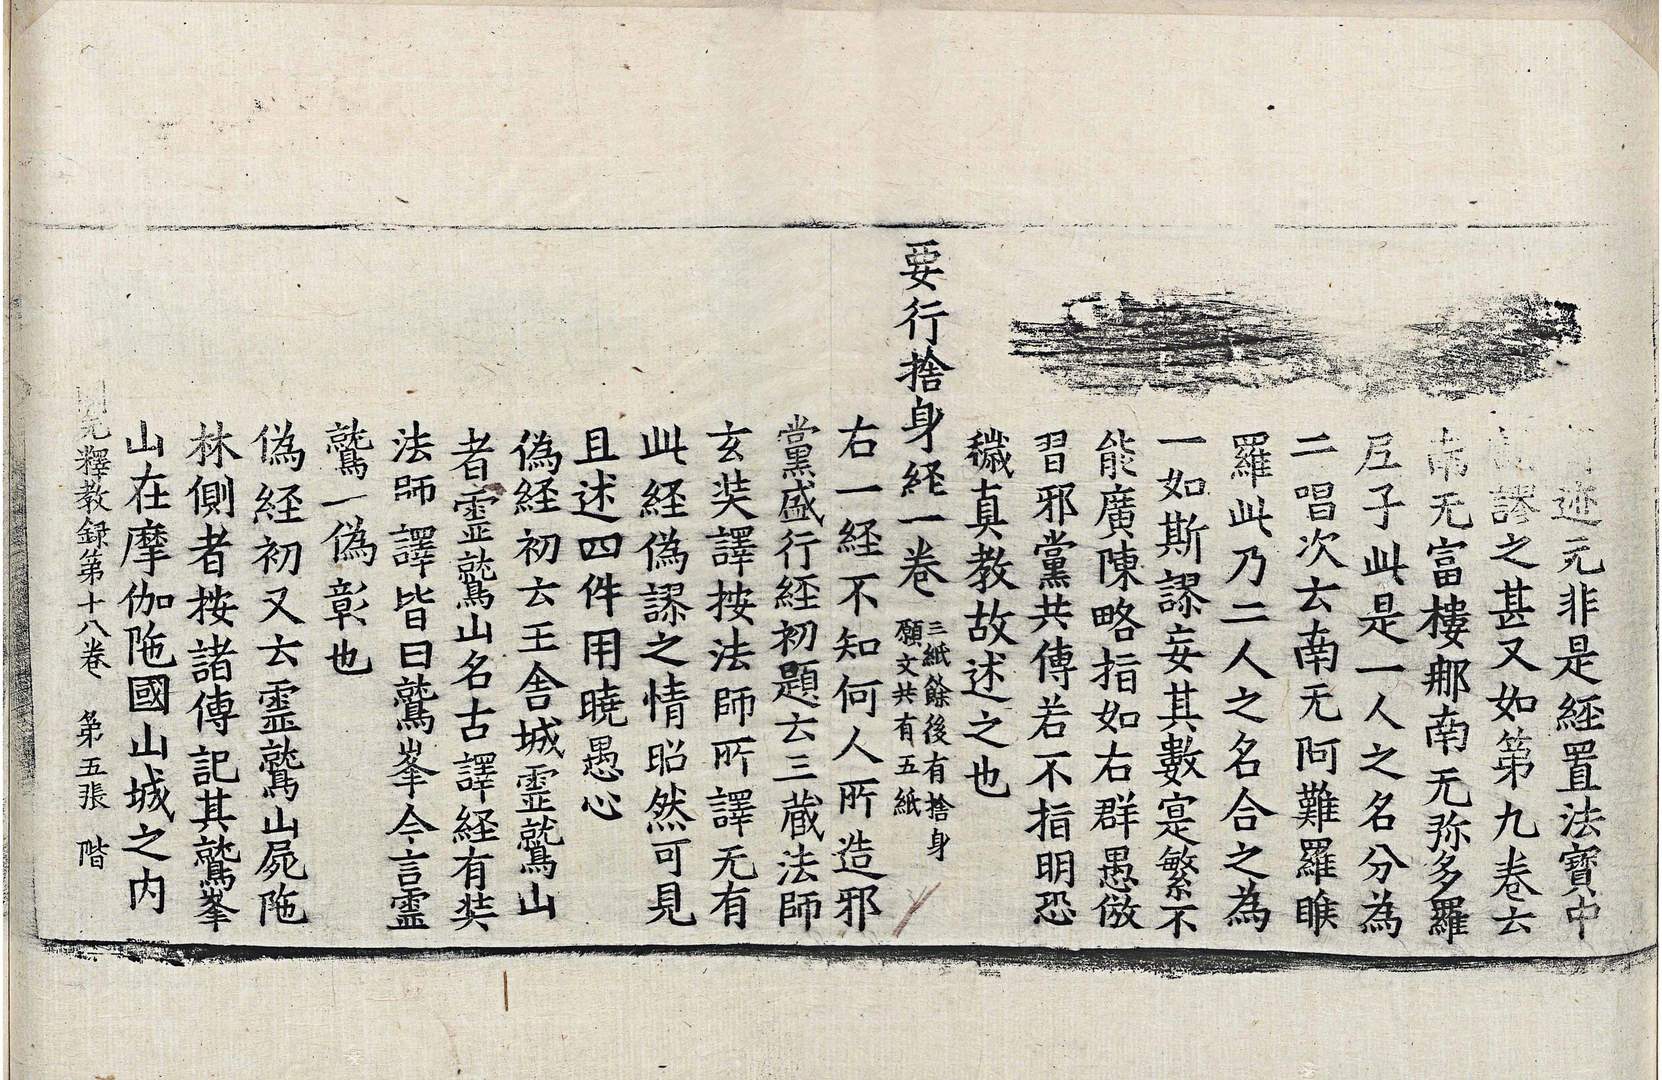 迹元非是経置法寶中
謬之甚又如第九卷云
南无富樓那南无弥多羅
𡰱子此是一人之名分為
二唱次云南无阿難羅睺
羅此乃二人之名合之為
一如斯謬妄其數寔繁不
能廣陳略指如右群愚倣
習邪黨共傳若不指明恐
穢真教故述之也
要行捨身経一卷 三紙餘後有捨身
願文共有五紙
右一経不知何人所造邪
黨盛行経初題云三藏法師
玄奘譯按法師所譯无有
此経偽謬之情昭然可見
且述四件用曉愚心
偽経初云王舍城靈鷲山
者靈鷲山名古譯経有奘
法師譯皆曰鷲峯今言靈
鷲一偽彰也
偽経初又云靈鷲山屍陁
林側者按諸傳記其鷲峯
山在摩伽陁國山城之内
開元釋教録第十八卷 第五張 階